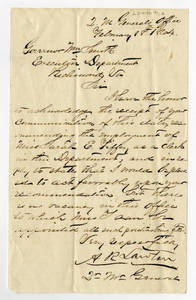 Q. M. Generals Office
February 18th 1864.
Governor Wm Smith
Executive Department
Richmond Va
Sir
I have the honor
to acknowledge the receipt of your
communication of that date, re-
commending the employment of
Miss Sarah E. as a clerk
in this Department, and in re-
ply to state that I would be plea-
sed to act favorably upon your
recommendation but there
is no vacancy in this office
to which Miss can be
appointed all such positions
Very Respectfully
A. R. Lawton
Qr Mr General